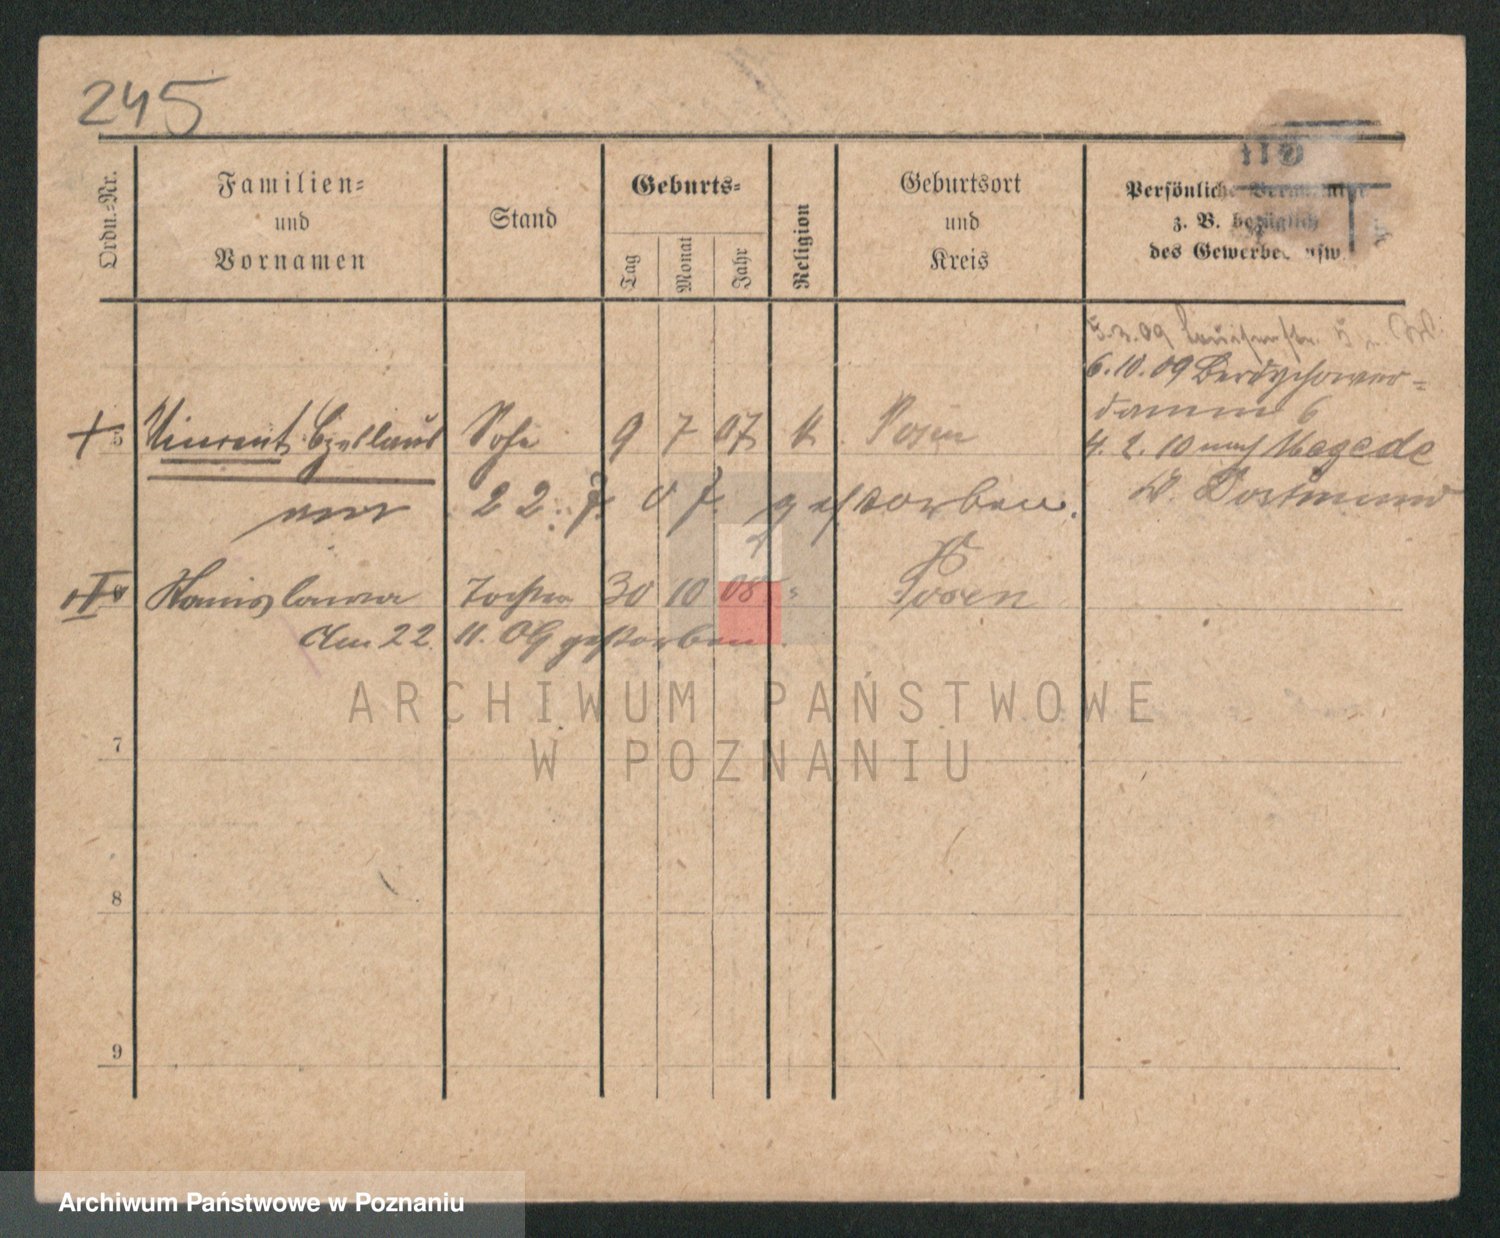 245
Ordn.-Nr.
Familien-
und
Vornamen
Stand
Geburts-
Tag
Monat
Jahr
Religion
Geburtsort
und
Kreis
Persönliche
z. B. bezüglich
des Gewerbes usw.
5.3.09 5
6.10.09 Berdychower-
damm 6
4. 2. 10 nach
W. Dortmund
5 Vincent Sohn 9 7 07 k Posen
22. 7. 07. gestorben.
Stanislawa Tochter 30 10 08 Posen
Am 22. 11. 09 gestorben.
7
8
9
ARCHIWUM PAŃSTWOWE
W POZNANIU
Archiwum Państwowe w Poznaniu